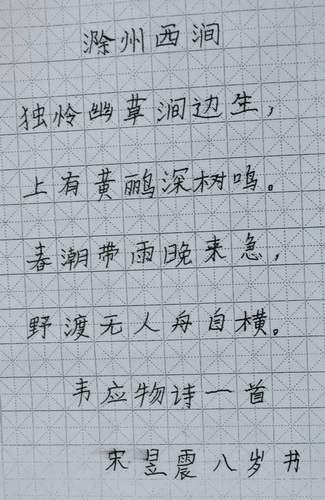 滁州西涧
独怜幽草涧边生，
上有黄鹂深树鸣。
春潮带雨晚来急，
野渡无人舟自横。
韦应物诗一首
宋昱震八岁书